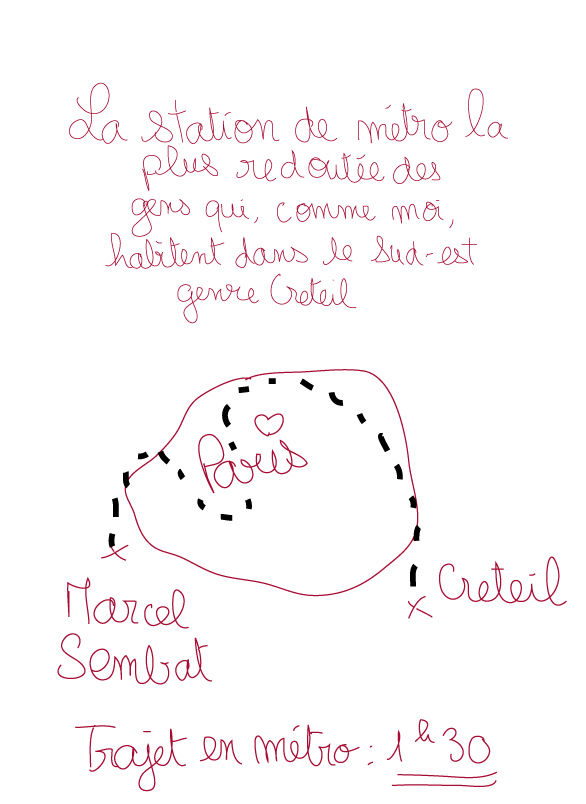 La station de métro la
plus redoutée des
gens qui, comme moi,
habitent dans le Sud-est
genre Creteil
Paris
Creteil
Marcel
Sembat
Trajet en métro : 1h30